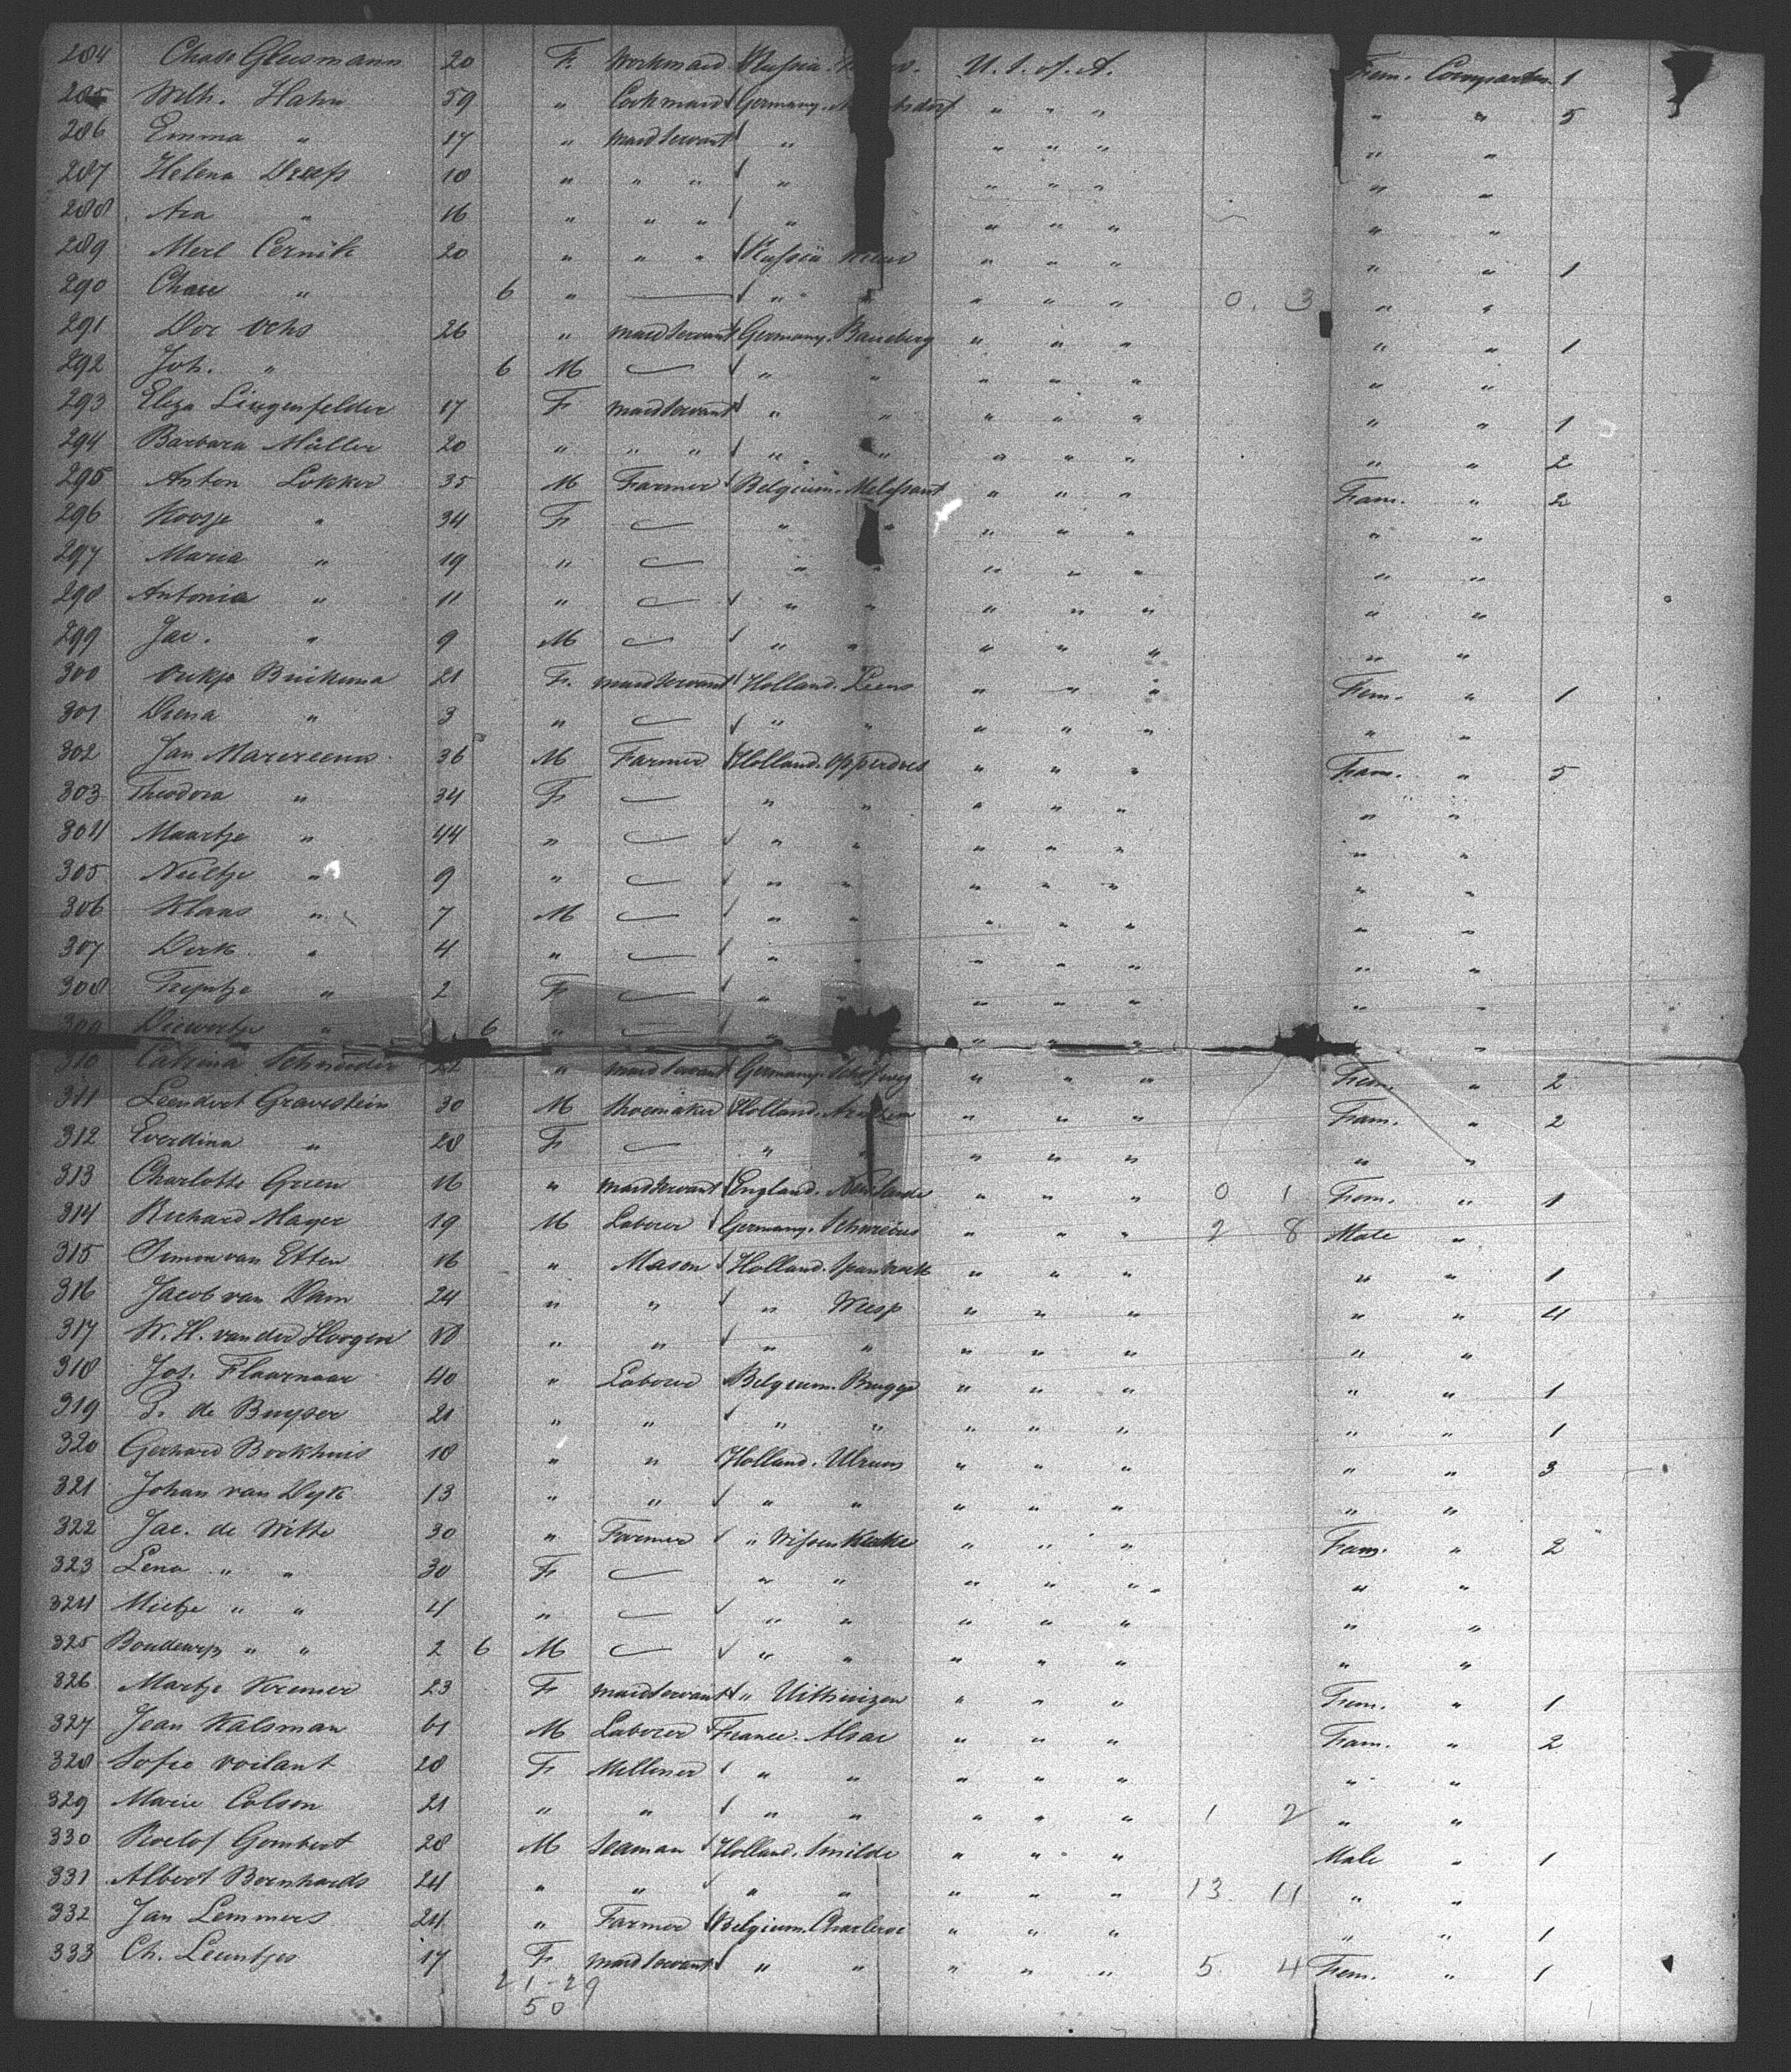 284 Chase Glusmann 20 F. Workmaid Russia. U. S. of A. Fem. Compartm. 1
285 Wilh. Hahn 59 " Cookmaid Germany. " " " " " 5
286 Emma " 17 " maidservant " " " " " "
287 Helena Dreess 18 " " " " " " " " "
288 Ara " 16 " " " " " " " " "
289 Merl Cernik 20 " " " Russia Kiew " " " " " 1
290 Chaie " 6 " — " " " " " 0. 3 " "
291 Dor Ochs 26 " maidservant Germany. Bamberg " " " " " 1
292 Joh. " 6 M — " " " " " " "
293 Eliza Lingenfelder 17 F maidservant " " " " " " " 1
294 Barbara Müller 20 " " " " " " " " " " 2
295 Anton Lokker 35 M Farmer Belgium. Melissant " " " Fam. " 2
296 Koosje " 34 F — " " " " " " "
297 Maria " 19 " — " " " " " " "
298 Antonia " 11 " — " " " " " " "
299 Jac. " 9 M — " " " " " " "
300 Aukje Buikema 21 F. maidservant Holland. Leens " " " Fem. " 1
301 Diena " 3 " — " " " " " " "
302 Jan Marereeuw 36 M Farmer Holland. Opperdoes " " " Fam. " 5
303 Theodora " 34 F — " " " " " " "
304 Maartje " 44 " — " " " " " " "
305 Neeltje " 9 " — " " " " " " "
306 Klaas " 7 M — " " " " " " "
307 Dirk " 4 " — " " " " " " "
308 Trijntje " 2 F — " " " " " " "
309 Diewertje " 6 " — " " " " "
310 Catrina Schneider 22 " maidservant Germany. " " " Fem. " 2
311 Leendert Gravestein 30 M Shoemaker Holland. Arnhem " " " Fam. " 2
312 Everdina " 28 F — " " " " " " "
313 Charlotte Green 16 " maidservant England. " " " 0 1 Fem. " 1
314 Richard Mayer 19 M Laborer Germany. Schwiebus " " " 2 8 Male "
315 Simon van Etten 16 " Mason Holland. " " " " " 1
316 Jacob van Dam 24 " " " Weesp " " " " " 4
317 W. H. van der Hoogen 18 " " " " " " " " "
318 Jos. Flaurnaar 40 " Laborer Belgium. Brugge " " " " " 1
319 P. de Buyser 21 " " " " " " " " " 1
320 Gerhard Bookhuis 18 " " Holland. Ulrum " " " " " 3
321 Johan van Dyk 13 " " " " " " " " "
322 Jac. de Witte 30 " Farmer " Wissenkerke " " " Fam. " 2
323 Lena " " 30 F — " " " " " " "
324 Mietje " " 4 " — " " " " " " "
325 Boudewyn " " 2 6 M — " " " " " " "
326 Martje Kremer 23 F maidservant " Uithuizen " " " Fem. " 1
327 Jean Kalsman 61 M Laborer France. Alsac " " " Fam. " 2
328 Sofie Voilant 28 F Milliner " " " " " " "
329 Marie Colson 21 " " " " " " " 1 2 " "
330 Roelof Gombert 28 M Seaman Holland. Smilde " " " Male " 1
331 Albert Bernhards 24 " " " " " " " 13. 11 " "
332 Jan Lemmers 24 " Farmer Belgium. Charleroi " " " " " 1
333 Ch. Leuntjes 17 F maidservant " " " " " 5 4 Fem. " 1
21-29
50